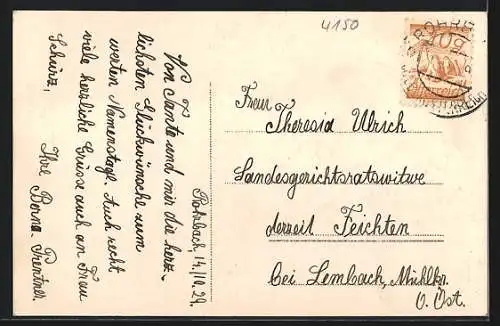 4150
Rohrbach, 14./10. 29.
Von Tante und mir die herz-
lichsten Glückwünsche zum
werten Namenstage. Auch recht
viele herzliche Grüsse auch an Frau
Schürz,
Ihre Berna Prentner.
Frau
Theresia Ulrich
Landesgerichtsratswitwe
derzeit Feichten
bei Lembach, Mühlkr.
O. Öst.